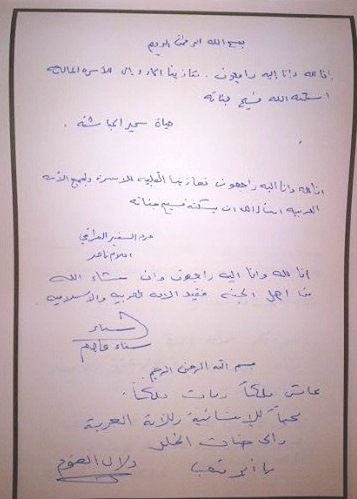 بسم الله الرحمن الرحيم
انا لله وانا اليه راجعون . تعازينا الحارة الى الأسرة المالكة
اسكنه الله فسيح جناته
حياة سمير
انا لله وانا اليه راجعون تعازينا القلبية للاسرة ولجميع الأمة
العربية الله ان يسكنه فسيح جناته
حرم السفير العراقي
احلام ناصر
انا لله وانا اليه راجعون وان شاء الله
من اهل الجنة فقيد الأمة العربية والاسلامية
سناء
سناء عاصم
بسم الله الرحمن الرحيم
عاش ملكاً ومات ملكاً
محباً للإنسانية وللأمة العربية
والى جنات الخلد
يا ابو
دلال